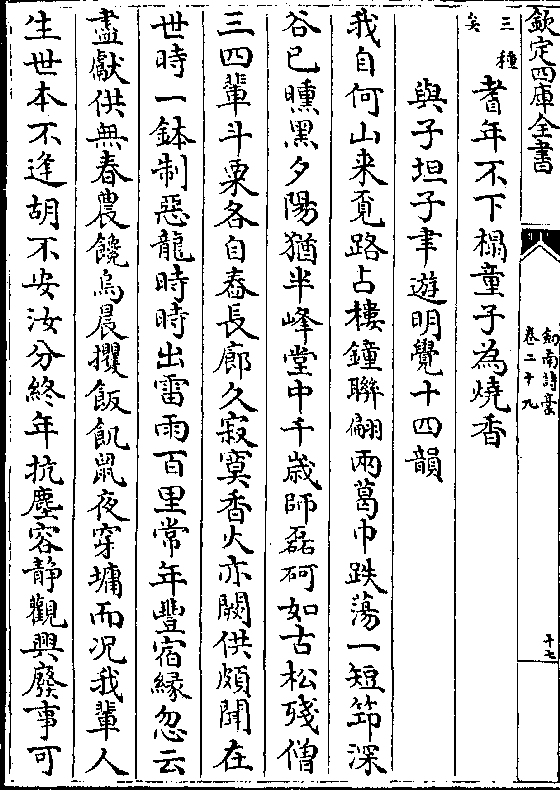 欽定四庫全書
劍南詩藁
卷二十九
十七
三種
矣
耆年不下榻童子為燒香
與子坦子聿遊明覺十四韻
我自何山来覓路占樓鐘聯翩兩葛巾跌蕩一短笻深
谷已曛黑夕陽猶半峰堂中千歲師磊砢如古松殘僧
三四輩斗粟各自舂長廊久寂寞香火亦闕供頗聞在
世時一鉢制惡龍時時出雷雨百里常年豐宿緣忽云
盡獻供無春農饞烏晨攫飯飢鼠夜穿墉而况我輩人
生世本不逢胡不安汝分終年抗塵容静觀興廢事可